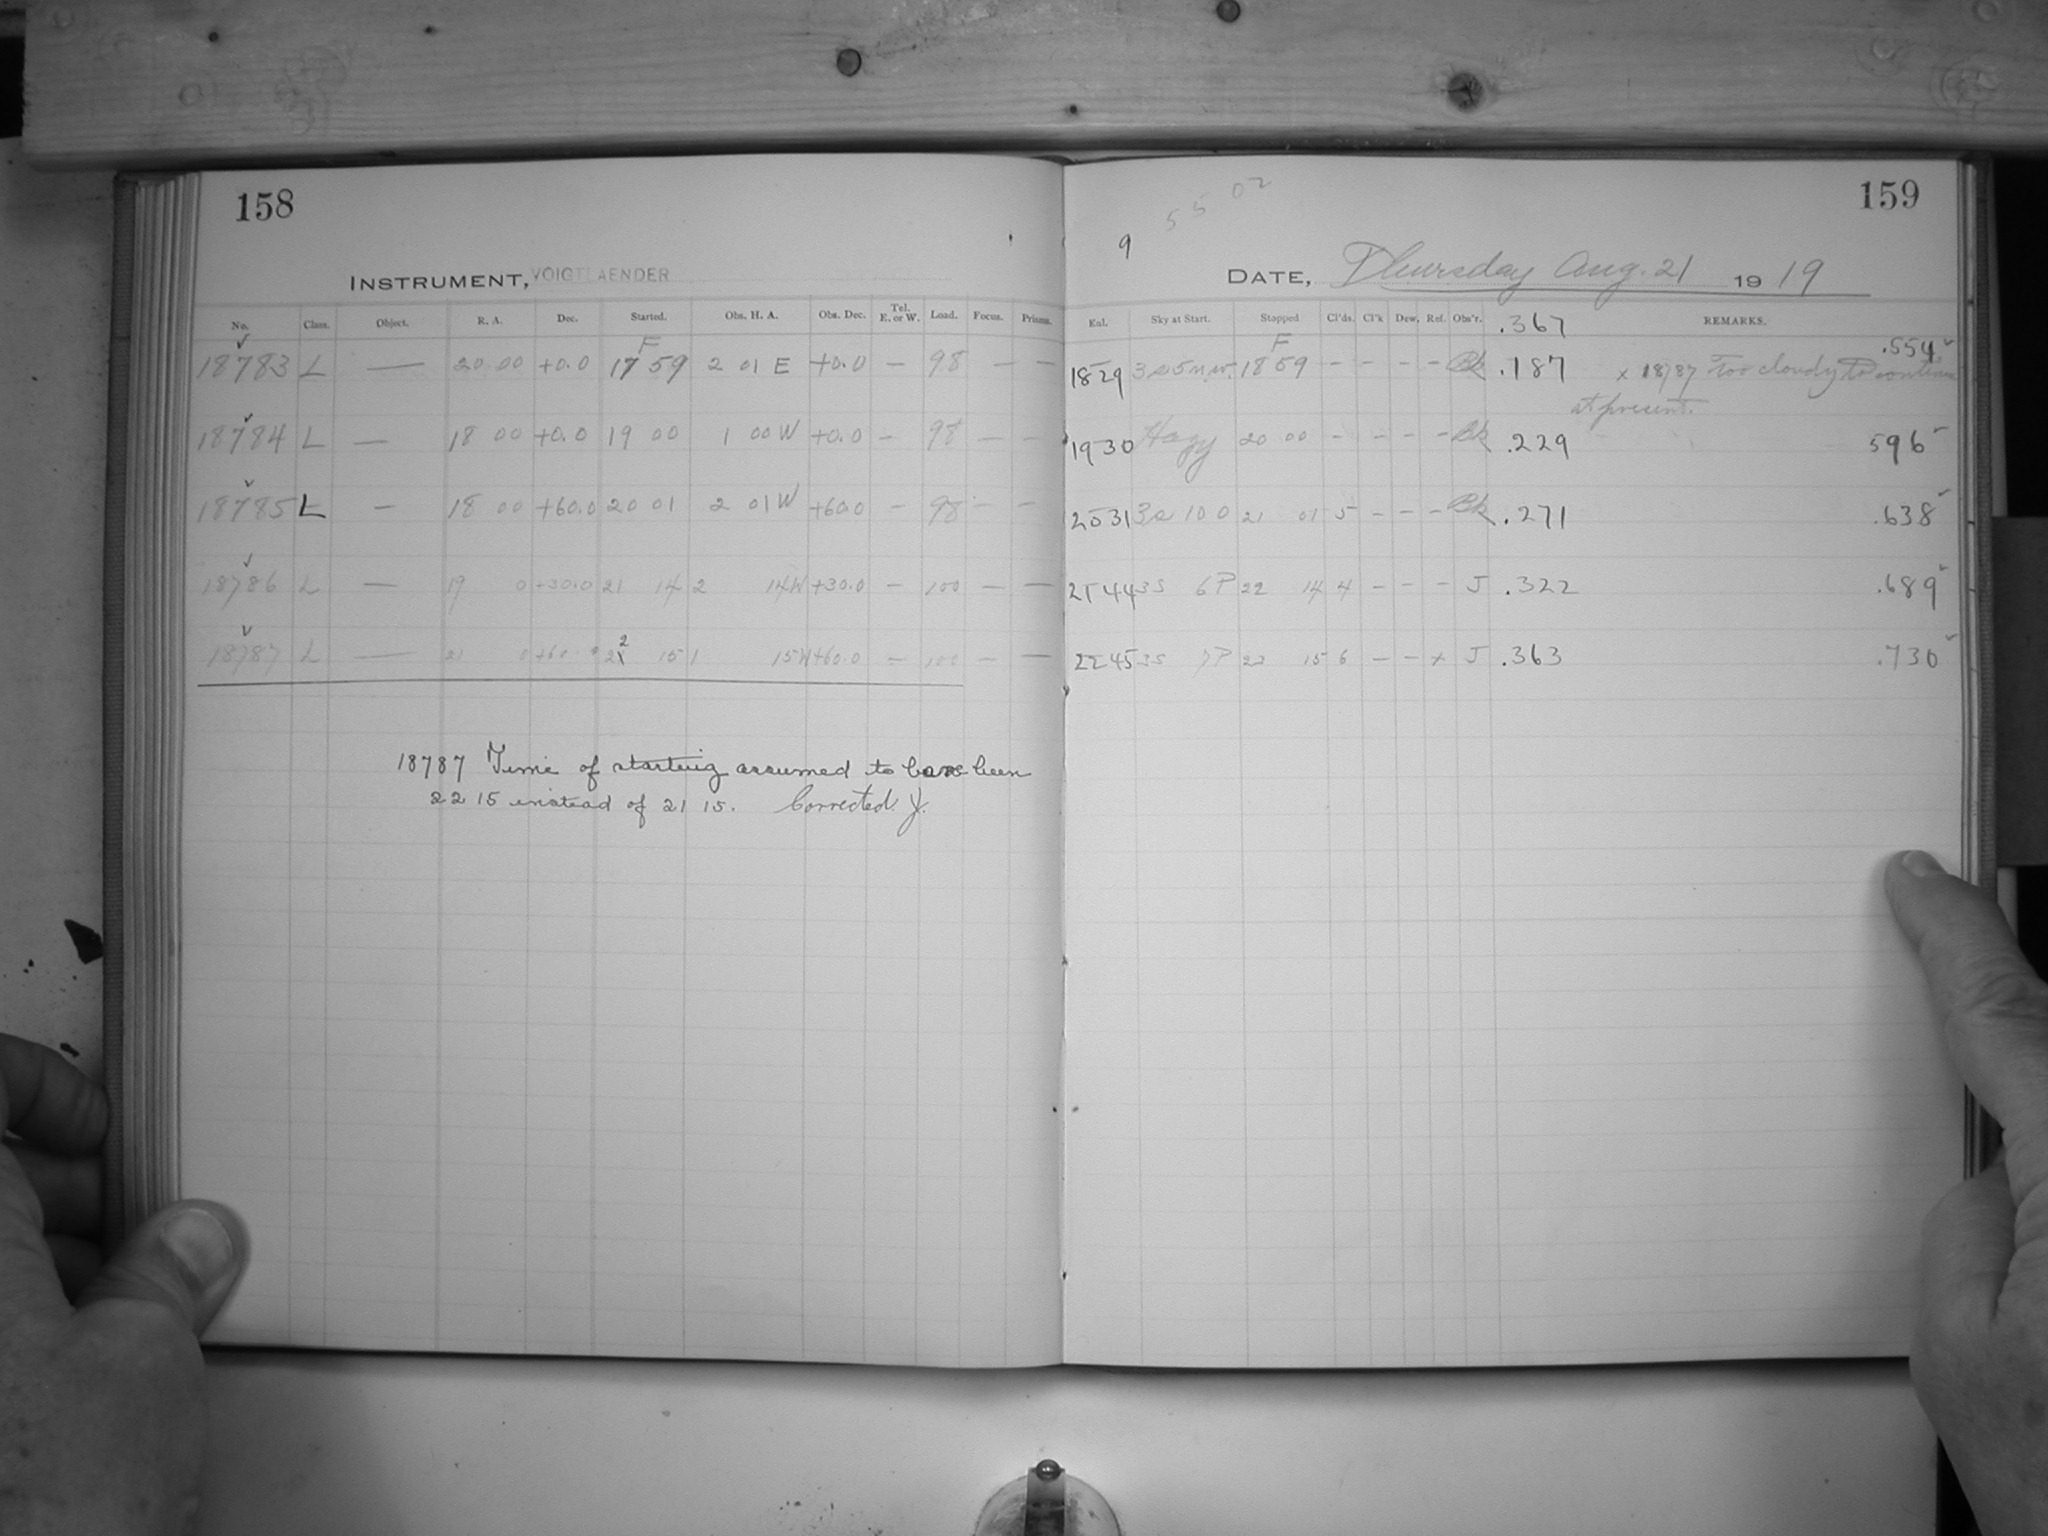 158
INSTRUMENT, VOIGTLAENDER
No. Class. Object. R. A. Dec. Started. Obs. H. A. Obs. Dec. Tel. E. or W. Load. Focus. Prisms.
F
18783 L — 20 00 +0.0 17 59 2 01 E +0.0 — 98 — —
18784 L — 18 00 +0.0 19 00 1 00 W +0.0 — 98 — —
18785 L — 18 00 +60.0 20 01 2 01 W +60.0 — 98 — —
18786 L — 19 0 +30.0 21 14 2 14 W +30.0 — 100 — —
18787 L — 21 0 +60.0 22 15 1 15 W +60.0 — 100 — —
18787 Time of starting assumed to have been
22 15 instead of 21 15. Corrected. J.
159
5 5 02
9
DATE, Thursday Aug. 21 1919
Exl. Sky at Start. Stopped Cl'ds. Cl'k Dew, Ref. Obs'r. .367 REMARKS.
F
.554
1829 3s 5 n.w. 18 59 - - - - Bk .187 x 18787 Too cloudy to continue
at present.
1930 Hazy 20 00 - - - - Bk .229 596
2031 3s 10 0 21 01 5 - - - Bk .271 .638
2144 3s 6P 22 14 4 - - - J .322 .689
2245 3s 7P 23 15 6 - - x J .363 .730